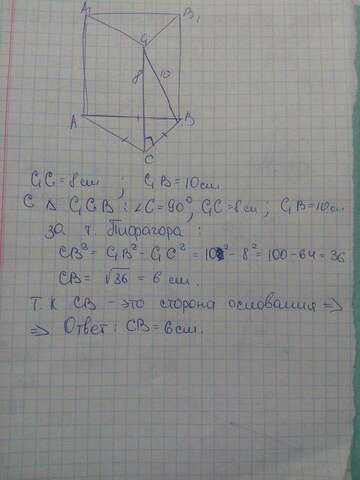 A₁ B₁
C₁
8 10
A B
C
C₁C = 8 см ; C₁B = 10 см
С Δ C₁CB : ∠C = 90°, C₁C = 8 см ; C₁B = 10 см
за т. Пифагора :
CB² = C₁B² - C₁C² = 10² - 8² = 100 - 64 = 36
CB = √36 = 6 см.
Т.к CB - это сторона основания =>
=> Ответ : CB = 6 см.